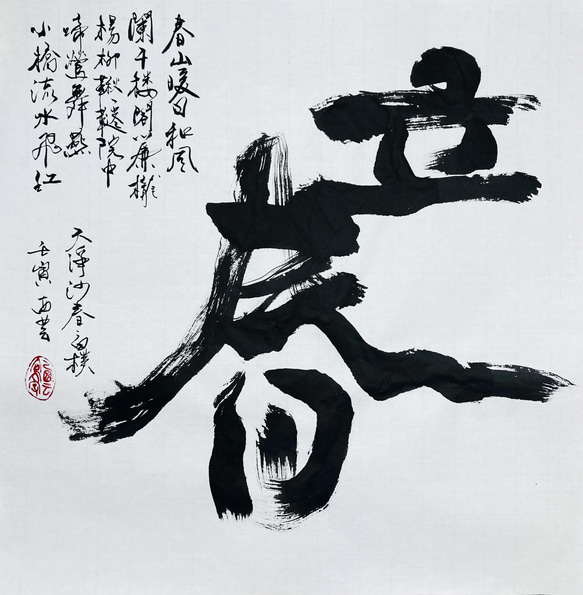 立春
春山暖日和風
闌干楼閣簾櫳
楊柳鞦韆院中
啼鶯舞燕
小橋流水飛红
天淨沙春白樸
壬寅西芸